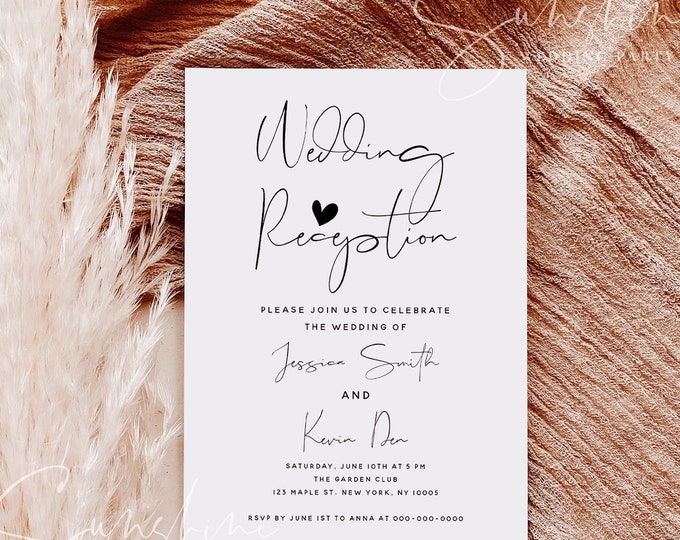 Sunshine
WEDDING PARTY
Wedding
Reception
PLEASE JOIN US TO CELEBRATE
THE WEDDING OF
Jessica Smith
AND
Kevin Den
SATURDAY, JUNE 10TH AT 5 PM
THE GARDEN CLUB
123 MAPLE ST. NEW YORK, NY 10005
RSVP BY JUNE 1ST TO ANNA AT 000-000-0000
Sunshine